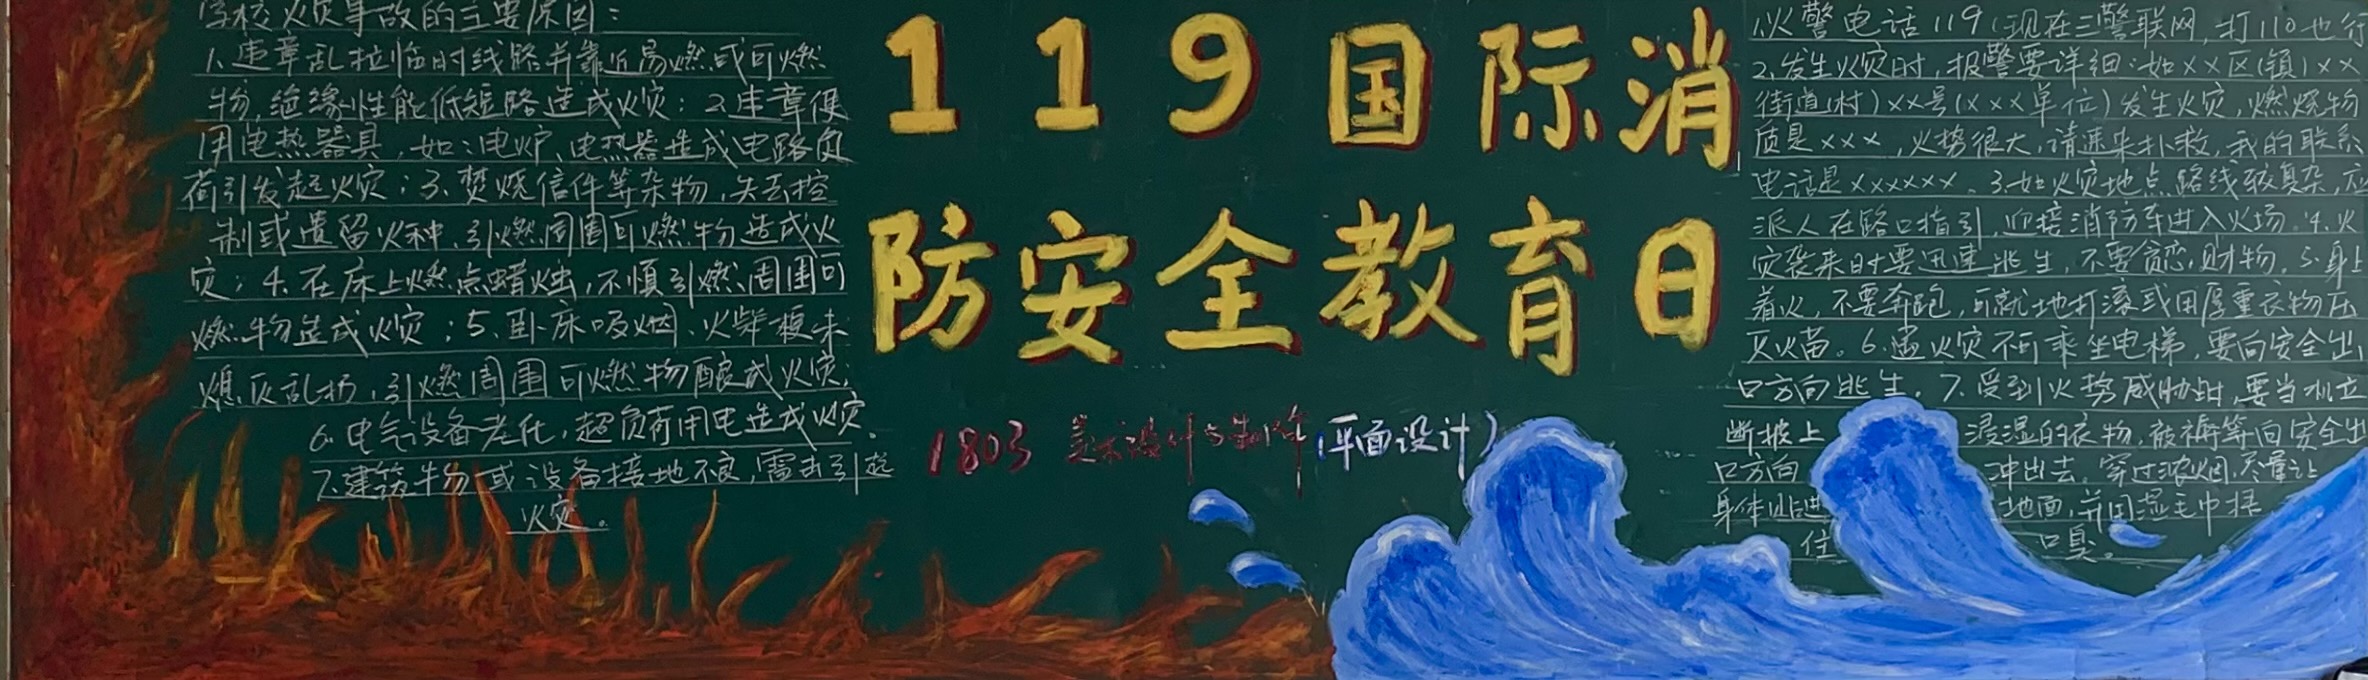 学校火灾事故的主要原因：
1.违章乱拉临时线路并靠近易燃或可燃
物,绝缘性能低短路造成火灾；2.违章使
用电热器具，如：电炉、电热器造成电路负
荷引发起火灾；3.焚烧信件等杂物，失去控
制或遗留火种，引燃周围可燃物造成火
灾；4.在床上燃点蜡烛,不慎引燃周围可
燃物造成火灾；5.卧床吸烟、火柴梗未
熄灭乱扔，引燃周围可燃物酿成火灾；
6.电气设备老化，超负荷用电造成火灾。
7.建筑物或设备接地不良，雷击引起
火灾。
119国际消
防安全教育日
1803 美术设计与制作(平面设计)
1.火警电话119(现在三警联网,打110也行
2.发生火灾时,报警要详细:如××区(镇)××
街道(村)××号(×××单位)发生火灾,燃烧物
质是×××,火势很大,请速来扑救,我的联系
电话是××××××。3.如火灾地点路线较复杂,应
派人在路口指引,迎接消防车进入火场。4.火
灾袭来时要迅速逃生,不要贪恋财物。5.身上
着火,不要奔跑,可就地打滚或用厚重衣物压
灭火苗。6.遇火灾不可乘坐电梯,要向安全出
口方向逃生。7.受到火势威胁时,要当机立
断披上 浸湿的衣物,被褥等向安全出
口方向 冲出去。穿过浓烟,尽量让
身体 地面,并用湿毛巾捂
住 口鼻。